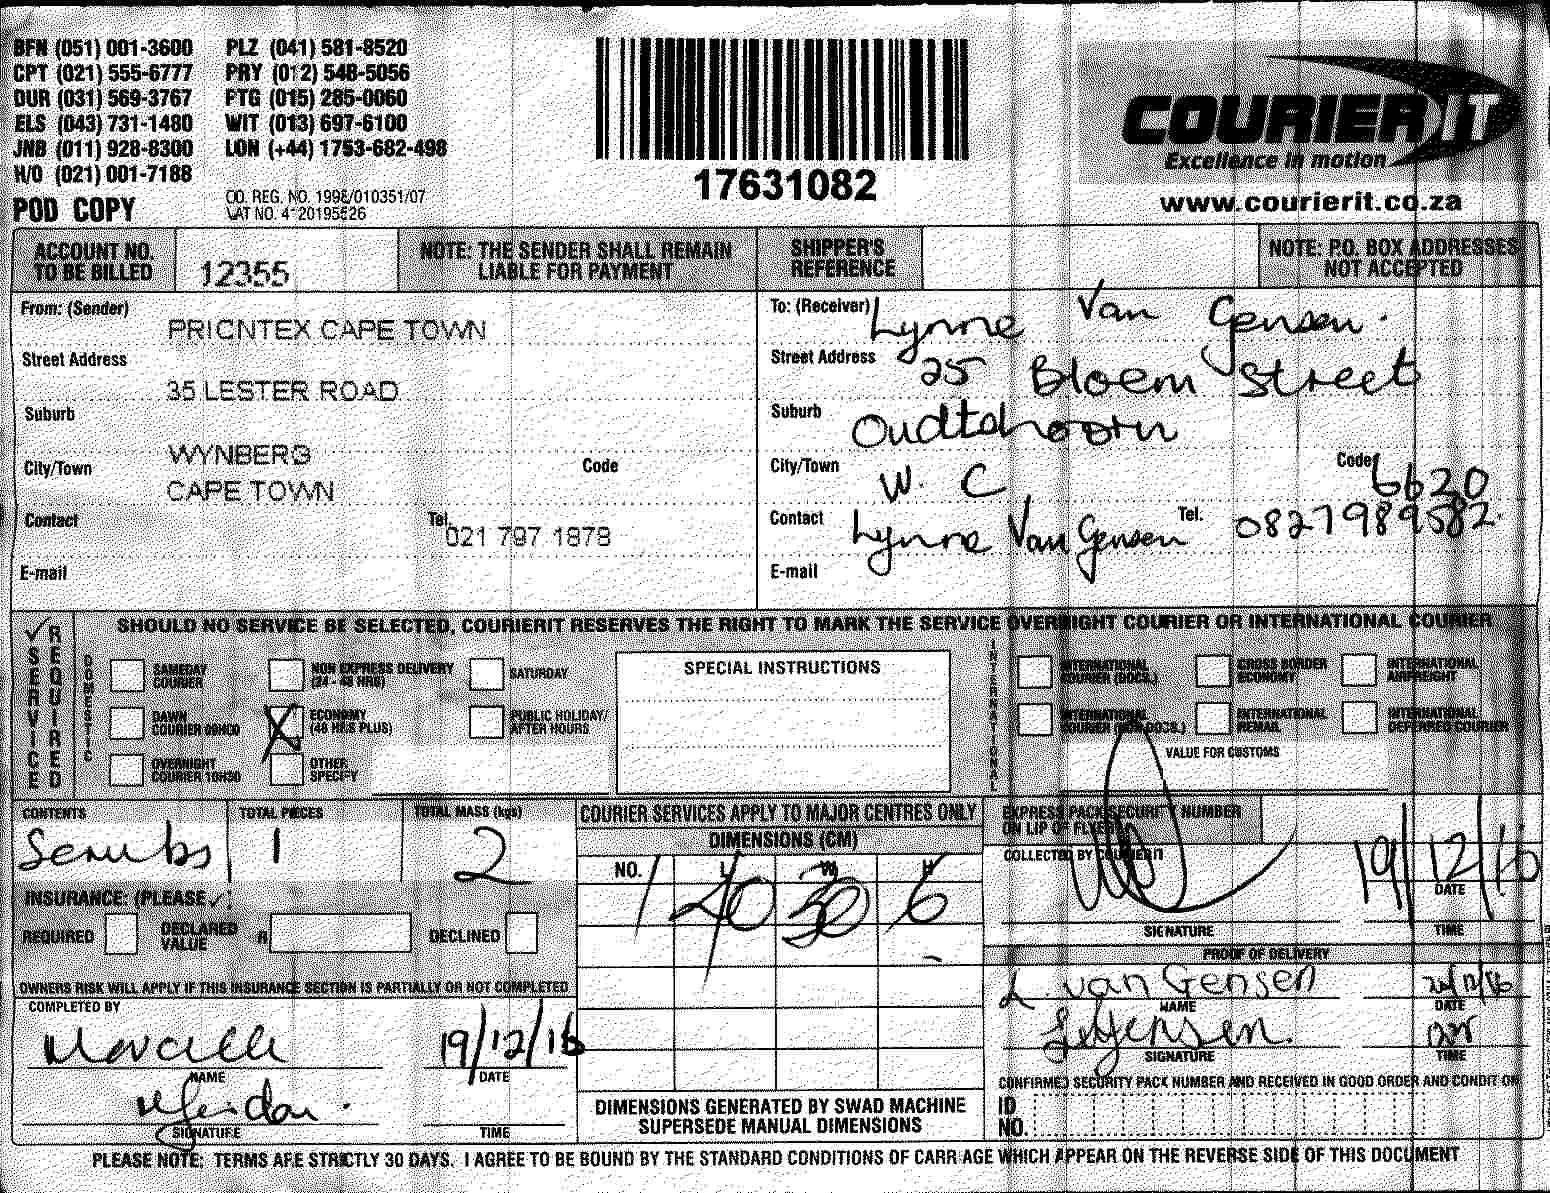 BFN (051) 001-3600 PLZ (041) 581-8520
CPT (021) 555-6777 PRY (012) 548-5056
DUR (031) 569-3767 PTG (015) 285-0060
ELS (043) 731-1480 WIT (013) 697-6100
JNB (011) 928-8300 LON (+44) 1753-682-498
H/O (021) 001-7188
POD COPY
CO. REG. NO. 1998/010351/07
VAT NO. 4120195526
17631082
COURIER IT
Excellence in motion
www.courierit.co.za
ACCOUNT NO. TO BE BILLED 12355
NOTE: THE SENDER SHALL REMAIN LIABLE FOR PAYMENT
SHIPPER'S REFERENCE
NOTE: P.O. BOX ADDRESSES NOT ACCEPTED
From: (Sender) PRICNTEX CAPE TOWN
Street Address 35 LESTER ROAD
Suburb WYNBERG
City/Town CAPE TOWN Code
Contact Tel. 021 797 1878
E-mail
To: (Receiver) Lynne Van Gensen.
Street Address 25 Bloem Street
Suburb Oudtshoorn
City/Town W. C Code 6620
Contact Lynne Van Gensen Tel. 0827989582
E-mail
SERVICE REQUIRED
SHOULD NO SERVICE BE SELECTED, COURIERIT RESERVES THE RIGHT TO MARK THE SERVICE OVERNIGHT COURIER OR INTERNATIONAL COURIER
DOMESTIC
SAMEDAY COURIER
NON EXPRESS DELIVERY (24 - 48 HRS)
SATURDAY
DAWN COURIER 09H00
ECONOMY (48 HRS PLUS)
PUBLIC HOLIDAY/ AFTER HOURS
OVERNIGHT COURIER 10H30
OTHER SPECIFY
SPECIAL INSTRUCTIONS
INTERNATIONAL
INTERNATIONAL COURIER (DOCS.)
CROSS BORDER ECONOMY
INTERNATIONAL AIRFREIGHT
INTERNATIONAL COURIER (NON DOCS.)
INTERNATIONAL REMAIL
INTERNATIONAL DEFERRED COURIER
VALUE FOR CUSTOMS
CONTENTS Scrubs
TOTAL PIECES 1
TOTAL MASS (kgs) 2
INSURANCE: (PLEASE ✓)
REQUIRED DECLARED VALUE R DECLINED
OWNERS RISK WILL APPLY IF THIS INSURANCE SECTION IS PARTIALLY OR NOT COMPLETED
COMPLETED BY
19/12/16
NAME DATE
SIGNATURE TIME
COURIER SERVICES APPLY TO MAJOR CENTRES ONLY
DIMENSIONS (CM)
NO. L W H
1 40 30 6
DIMENSIONS GENERATED BY SWAD MACHINE
SUPERSEDE MANUAL DIMENSIONS
EXPRESS PACK SECURITY NUMBER ON LIP OF FLYER
COLLECTED BY COURIERIT
19/12/16
DATE
SIGNATURE TIME
PROOF OF DELIVERY
L van Gensen
NAME DATE
SIGNATURE TIME
CONFIRMED SECURITY PACK NUMBER AND RECEIVED IN GOOD ORDER AND CONDITION
ID NO.
PLEASE NOTE: TERMS ARE STRICTLY 30 DAYS. I AGREE TO BE BOUND BY THE STANDARD CONDITIONS OF CARRIAGE WHICH APPEAR ON THE REVERSE SIDE OF THIS DOCUMENT